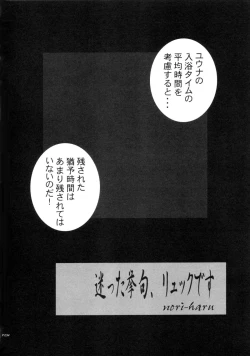 ユウナの
入浴タイムの
平均時間を
考慮すると・・・
残された
猶予時間は
あまり残されては
いないのだ！
迷った挙句、リュックです
nori-haru